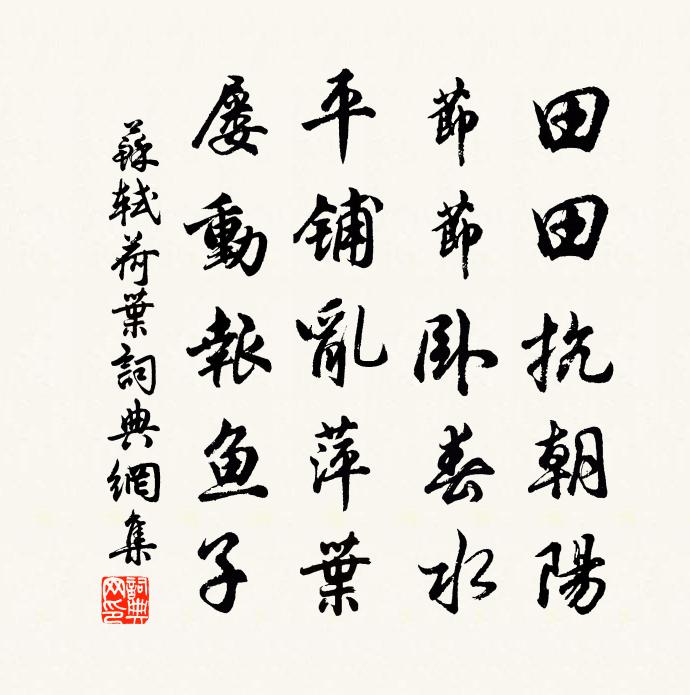 田田抗朝陽
節節卧春水
平鋪亂萍葉
屡動報鱼子
蘇軾荷葉詞典網集
詞典網印